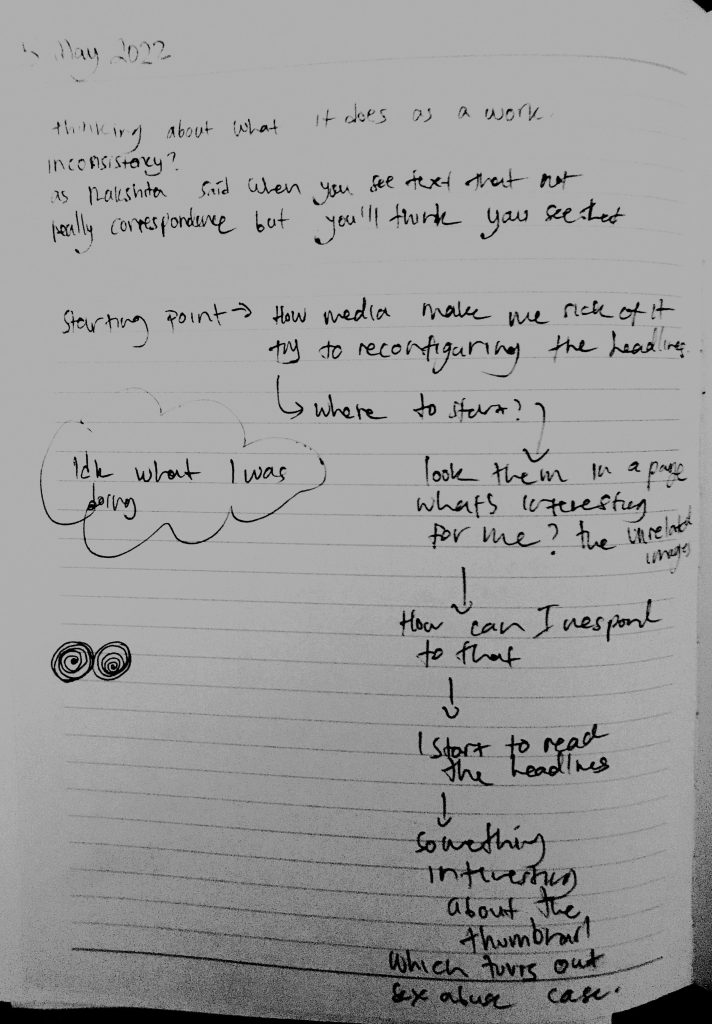 May 2022
thinking about what it does as a work.
inconsistency?
as Rakshita said when you see text that not
really correspondence but you'll think you see that
starting point → How media make me sick of it
try to reconfiguring the headlines.
↳ where to start?
Idk what I was
doing
look them in a page
what's interesting
for me? the unrelated
images
↓
How can I respond
to that
↓
I start to read
the headlines
↓
something
interesting
about the
thumbnail
which turns out
sex abuse case.